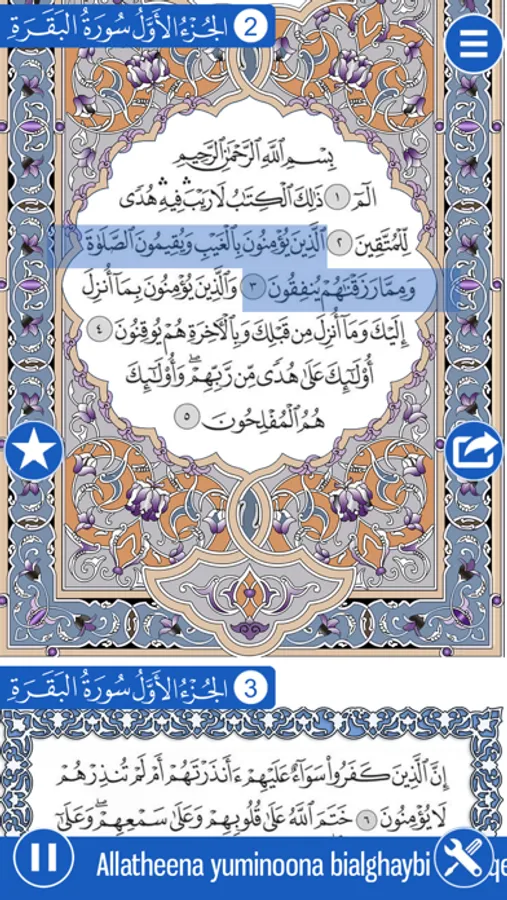 الجُزْءُ الأَوَّلُ سُورَةُ البَقَرَةِ 2
بِسْمِ اللَّهِ الرَّحْمَٰنِ الرَّحِيمِ
الٓمٓ ١ ذَٰلِكَ الْكِتَٰبُ لَا رَيْبَ ۛ فِيهِ ۛ هُدًى
لِّلْمُتَّقِينَ ٢ الَّذِينَ يُؤْمِنُونَ بِالْغَيْبِ وَيُقِيمُونَ الصَّلَاةَ
وَمِمَّا رَزَقْنَٰهُمْ يُنفِقُونَ ٣ وَالَّذِينَ يُؤْمِنُونَ بِمَا أُنزِلَ
إِلَيْكَ وَمَا أُنزِلَ مِن قَبْلِكَ وَبِالْآخِرَةِ هُمْ يُوقِنُونَ ٤
أُوْلَٰٓئِكَ عَلَىٰ هُدًى مِّن رَّبِّهِمْ ۖ وَأُوْلَٰٓئِكَ
هُمُ الْمُفْلِحُونَ ٥
الجُزْءُ الأَوَّلُ سُورَةُ البَقَرَةِ 3
إِنَّ الَّذِينَ كَفَرُواْ سَوَآءٌ عَلَيْهِمْ ءَأَنذَرْتَهُمْ أَمْ لَمْ تُنذِرْهُمْ
لَا يُؤْمِنُونَ ٦ خَتَمَ اللَّهُ عَلَىٰ قُلُوبِهِمْ وَعَلَىٰ سَمْعِهِمْ ۖ وَعَلَىٰٓ
Allatheena yuminoona bialghaybi